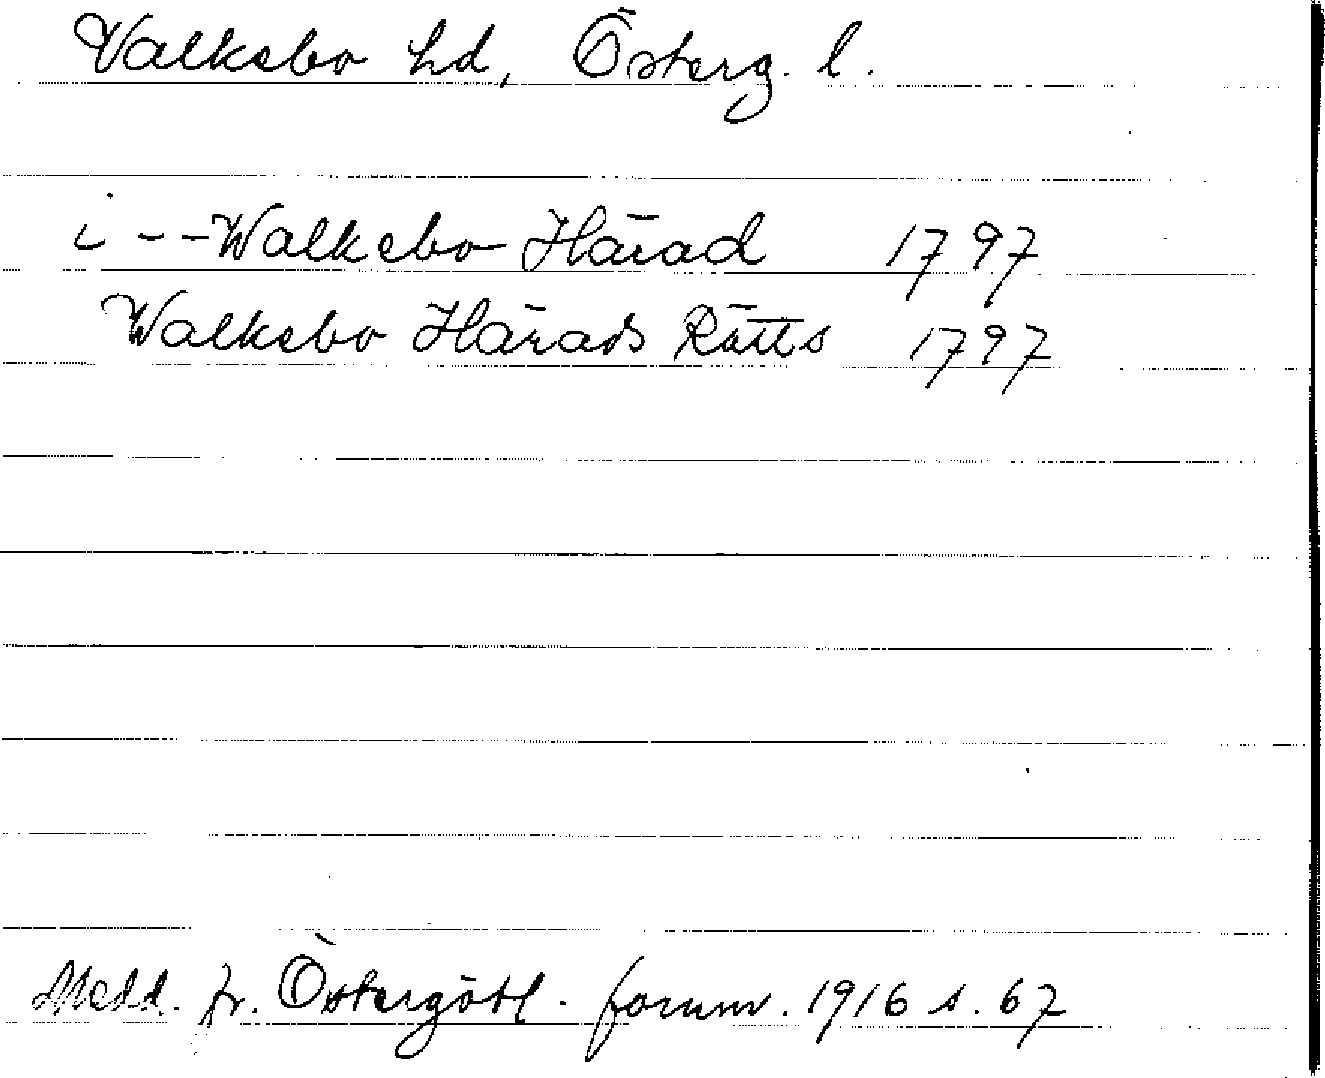 Valkebo hd, Österg. l.
i - - Walkebo Härad 1797
Walkebo Härads Rätts 1797
Medd. fr. Östergötl. fornm. 1916 s. 67